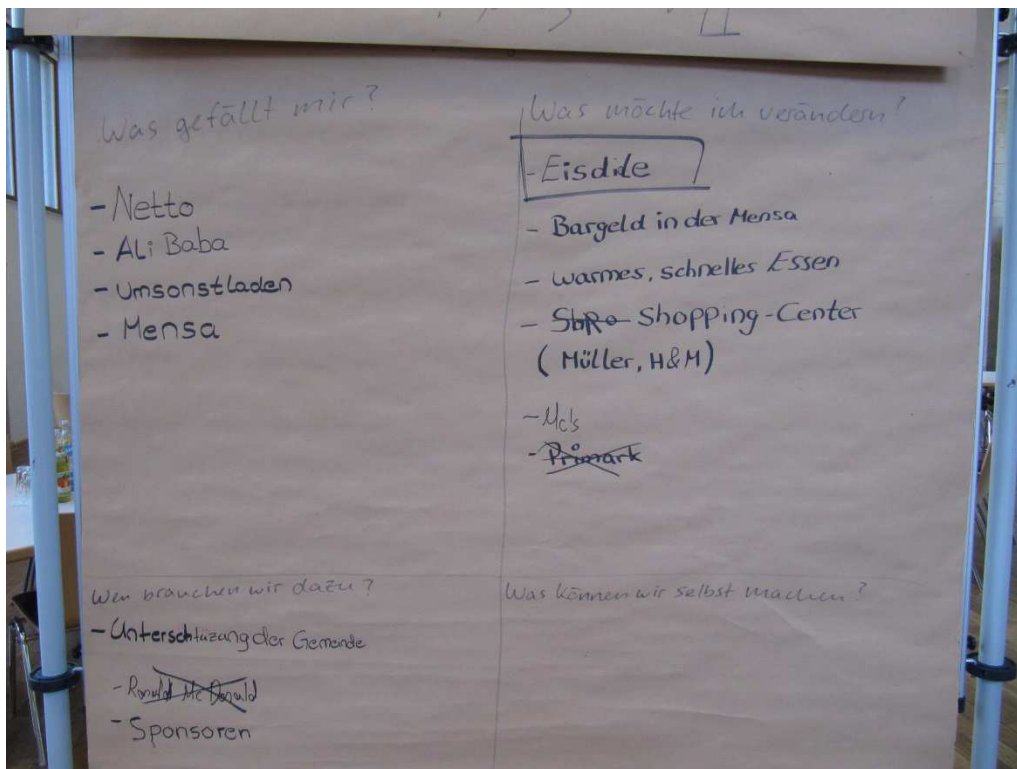 Was gefällt mir?
- Netto
- Ali Baba
- Umsonstladen
- Mensa
Was möchte ich verändern?
- Eisdile
- Bargeld in der Mensa
- warmes, schnelles Essen
- Shopping-Center
(Müller, H&M)
- Mc's
- Primark
Wen brauchen wir dazu?
- Unterschtüzung der Gemeinde
- Ronald Mc Donald
- Sponsoren
Was können wir selbst machen?